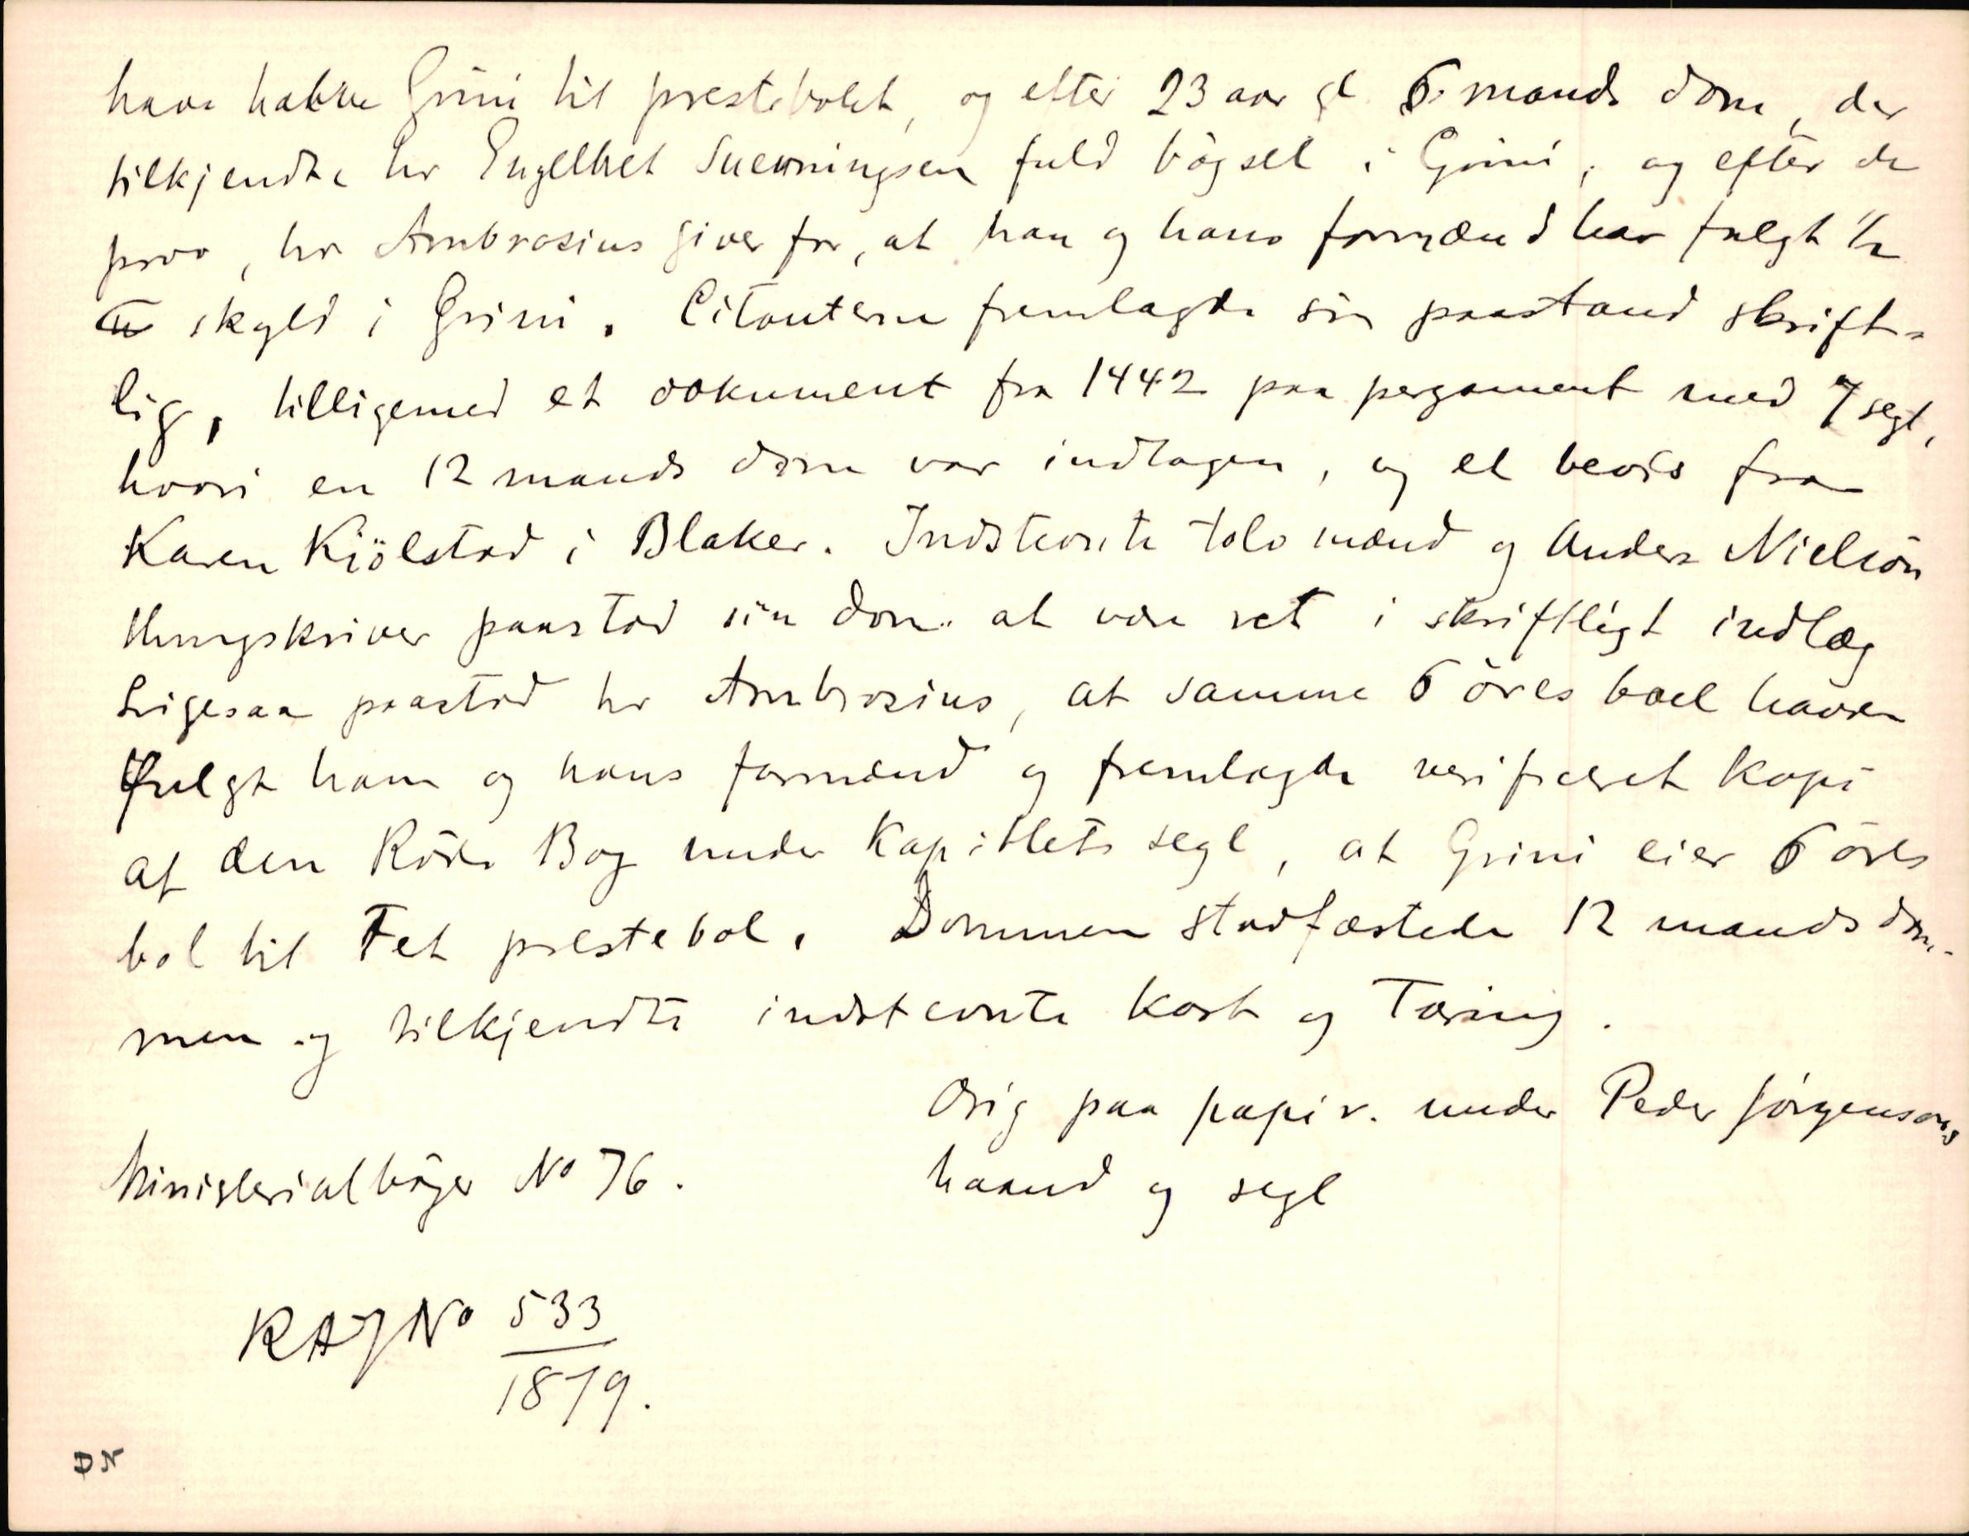 have havt Grini til prestebolet, og efter 23 aar gl. 6 mands dom, der
tilkjendte hr Engelbret Suenningsen fuld bögsel i Grini, og efter de
prov, hr Ambrosius giver for, at han og hans formænd har fulgt 1/2
skyld i Grini. Citanterne fremlagde sin paastand skrift-
lig, tilligemed et dokument fra 1442 paa pergament med 7 segl,
hvori en 12 mands dom var indtagen, og et bevis fra
Karen Kiölstad i Blaker. Indstevnte tolv mænd og Anders Nielsön
thingskriver paastod sin dom at være ret i skriftligt indlæg
Ligesaa paastod hr Ambrosius, at samme 6 öres boel havde
fulgt ham og hans formænd og fremlagde verificeret kopi
af den Röde Bog under Kapitlets segl, at Grini eier 6 öres
bol til Fet prestebol. Dommen stadfæstede 12 mands dom-
men og tilkjendte indstevnte Kost og Tæring.
Orig paa papir. under Peder Jörgensöns
haand og segl
Ministerialböger No 76.
RA J No 533
1879.
DN